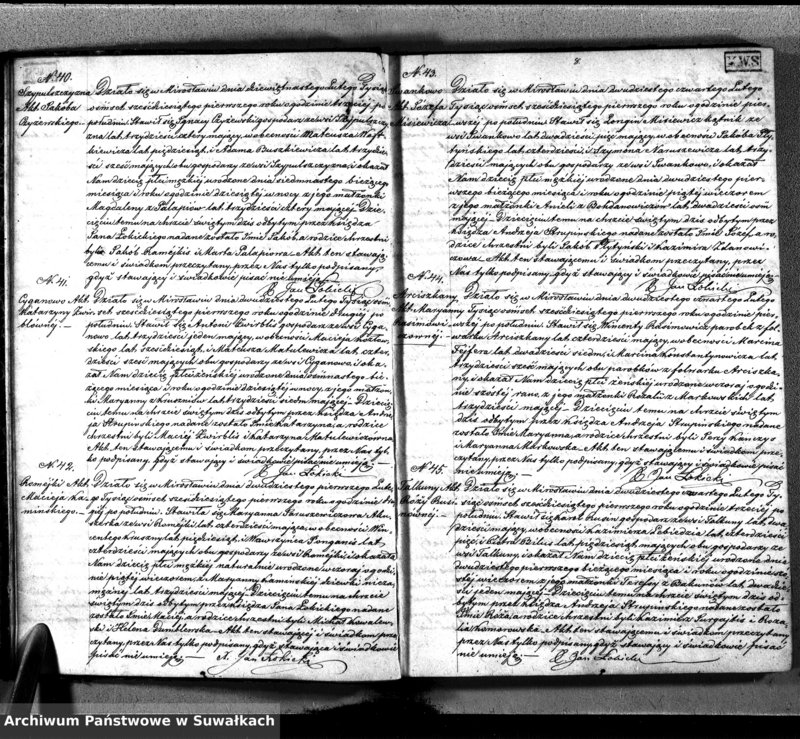 No. 40.
Szypulszczyzna
Akt. Jakóba
Ryżewskiego.
Działo się w Mirosławiu dnia dziewiętnastego Lutego Tysiąc
ośmset sześćdziesiątego pierwszego roku o godzinie trzeciej po
południu Stawił się Ignacy
gospodarz ze wsi Szypulszczy
zna lat trzydzieści cztery mający, w obecności Mateusza
lat pięćdziesiąt, i Adama Buszkiewicza lat trzydzie
ści sześć mających obu gospodarzy ze wsi Szypulszczyzna, i okazał
Nam dziecię płci męzkiej urodzone dnia siedmnastego bieżącego
miesiąca i roku o godzinie dziesiątej w nocy, z jego małżonki
Magdaleny z Palapiów lat trzydzieści cztery mającej. Dzie
cięciu temu na chrzcie świętym dziś odbytym przez Księdza
Jana Łobickiego nadane zostało Imie Jakób, a rodzicami chrzestni
byli: Jakób Ramejkis i Marta Palapiowa. Akt ten stawają
cemu i świadkom przeczytany, przez Nas tylko podpisany,
gdyż stawający i świadkowie pisać nie umieją.
X. Jan Łobicki
No. 41.
Cyganowo Akt
Katarzyny Zwir
blównej. —
Działo się w Mirosławiu dnia dwudziestego Lutego Tysiąc ośm
set sześćdziesiątego pierwszego roku o godzinie drugiej po
południu Stawił się Antoni Zwirblis gospodarz ze wsi Cyga
nowo lat trzydzieści jeden mający, w obecności Macieja
lat sześćdziesiąt, i Mateusza Matulewicza lat czter
dzieści sześć mających obu gospodarzy ze wsi Cyganowo i oka
zał Nam dziecię płci żeńskiej urodzone dnia ośmnastego bie
żącego miesiąca i roku o godzinie dziesiątej w nocy, z jego małżon
ki Maryanny z
lat trzydzieści siedm mającej. Dziecię
ciu temu na chrzcie świętym dziś odbytym przez Księdza Andrze
ja Strupińskiego nadane zostało Imie Katarzyna, a rodzice
chrzestni byli Maciej Zwirblis i Katarzyna Matulewiczowna
Akt ten stawającemu i świadkom przeczytany, przez Nas tyl
ko podpisany, gdyż stawający i świadkowie pisać nie umieją.
X. Jan Łobicki
No. 42.
Romejki Akt
Macieja Ka
mińskiego. —
Działo się w Mirosławiu dnia dwudziestego pierwszego Lute
go Tysiąc ośmset sześćdziesiątego pierwszego roku o godzinie dru
giej po południu, Stawiła się Maryanna
Aku
szerka ze wsi Romejki lat czterdzieści mająca, w obecności Win
centego
lat pięćdziesiąt, i Wawrzyńca Ponganis lat
czterdzieści mających obu gospodarzy ze wsi Romejki, i okazała
Nam dziecię płci męzkiej naturalnie urodzone wczoraj o godzi
nie piątej wieczorem, z Maryanny Kamińskiej dziewki nieza
mężnej lat trzydzieści mającej. Dziecięciu temu na chrzcie
świętym dziś odbytym przez Księdza Jana Łobickiego nadane
zostało Imie Maciej, a rodzice chrzestni byli Michał Kowalew
ski i Helena Dumblewska. Akt ten stawającej i świadkom prze
czytany, przez Nas tylko podpisany, gdyż stawająca i świadkowie
pisać nie umieją.
X. Jan Łobicki
8
No. 43.
Iwankowo
Akt. Józefa
Misiewicza
Działo się w Mirosławiu dnia dwudziestego czwartego Lutego
Tysiąc ośmset sześćdziesiątego pierwszego roku o godzinie pier
wszej po południu Stawił się Longin Misiewicz kątnik ze
wsi Iwankowo lat dwadzieścia pięć mający, w obecności Jakóba
lat czterdzieści i Szymona Naruszewicza lat trzy
dzieści mających obu gospodarzy ze wsi Iwankowo, i okazał
Nam dziecię płci męzkiej urodzone dnia dwudziestego pier
wszego bieżącego miesiąca i roku o godzinie piątej wieczorem
z jego małżonki Anieli z Bohdanowiczów lat dwadzieścia ośm
mającej. Dziecięciu temu na chrzcie świętym dziś odbytym przez
Księdza Andrzeja Strupińskiego nadane zostało Imie Józef, a ro
dzice chrzestni byli Jakób
i Kazimira Ulanowi
czowa. Akt ten Stawającemu i świadkom przeczytany, przez
Nas tylko podpisany, gdyż stawający i świadkowie pisać nie umieją.
X. Jan Łobicki
No. 44.
Arciszkany
Akt. Maryanny
Rasimowi
czownej. —
Działo się w Mirosławiu dnia dwudziestego czwartego Lutego
Tysiąc ośmset sześćdziesiątego pierwszego roku o godzinie pier
wszej po południu Stawił się Wincenty Rasimowicz parobek z fol
warku Arciszkany lat czterdzieści mający, w obecności Marcina
Fejfera lat dwadzieścia siedm, i Marcina Konstantynowicza lat
trzydzieści sześć mających obu parobków z folwarku Arciszka
ny, i okazał Nam dziecię płci żeńskiej urodzone wczoraj o godzi
nie szóstej rano, z jego małżonki Rozalii z
lat
trzydzieści mającej. — Dziecięciu temu na chrzcie świętym
dziś odbytym przez Księdza Andrzeja Strupińskiego nadane
zostało Imie Maryanna, a rodzice chrzestni byli Jerzy
i Maryanna Markowska. Akt ten Stawającemu i świadkom prze
czytany, przez Nas tylko podpisany, gdyż stawający i świadkowie pisać
nie umieją.
X. Jan Łobicki
No. 45.
Talkuny Akt
Rozy Rusi
nownej. —
Działo się w Mirosławiu dnia dwudziestego czwartego Lutego Ty
siąc ośmset sześćdziesiątego pierwszego roku o godzinie trzeciej po
południu Stawił się Karol Rusin gospodarz ze wsi Talkuny lat dwa
dzieścia mający, w obecności Kazimierza Lebiedzia lat czterdzieści
pięć i Piotra Bilis lat pięćdziesiąt mających obu gospodarzy ze
wsi Talkuny, i okazał Nam dziecię płci żeńskiej urodzone dnia
dwudziestego pierwszego bieżącego miesiąca i roku o godzinie szó
stej wieczorem, z jego małżonki Teresy z
lat dwadzie
ścia jeden mającej. Dziecięciu temu na chrzcie świętym dziś od
bytym przez Księdza Andrzeja Strupińskiego nadane zostało
Imie Roza, a rodzice chrzestni byli Kazimierz Surgajtis i Roza
lia Komorowska. Akt ten stawającemu i świadkom przeczytany
przez Nas tylko podpisany, gdyż stawający i świadkowie pisać
nie umieją. —
X. Jan Łobicki
Archiwum Państwowe w Suwałkach